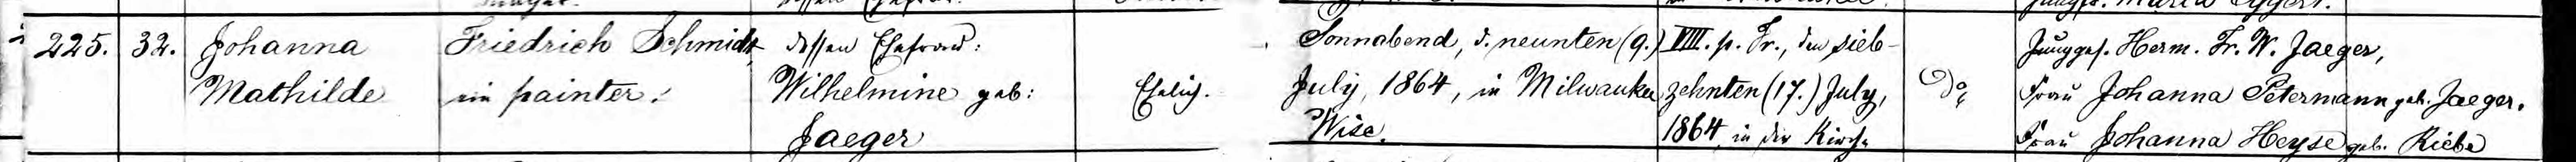 225. 32. Johanna Mathilde
Friedrich Schmidt,
ein painter.
dessen Ehefrau:
Wilhelmine geb:
Jaeger
Ehelich.
Sonnabend, d. neunten (9.)
July, 1864, in Milwaukee
Wisc.
VIII. p. Tr., den sieb-
zehnten (17.) July,
1864, in der Kirche
do
Junggs. Herm. Fr. W. Jaeger,
Frau Johanna Petermann geb. Jaeger.
Frau Johanna Heyse geb. Riebe